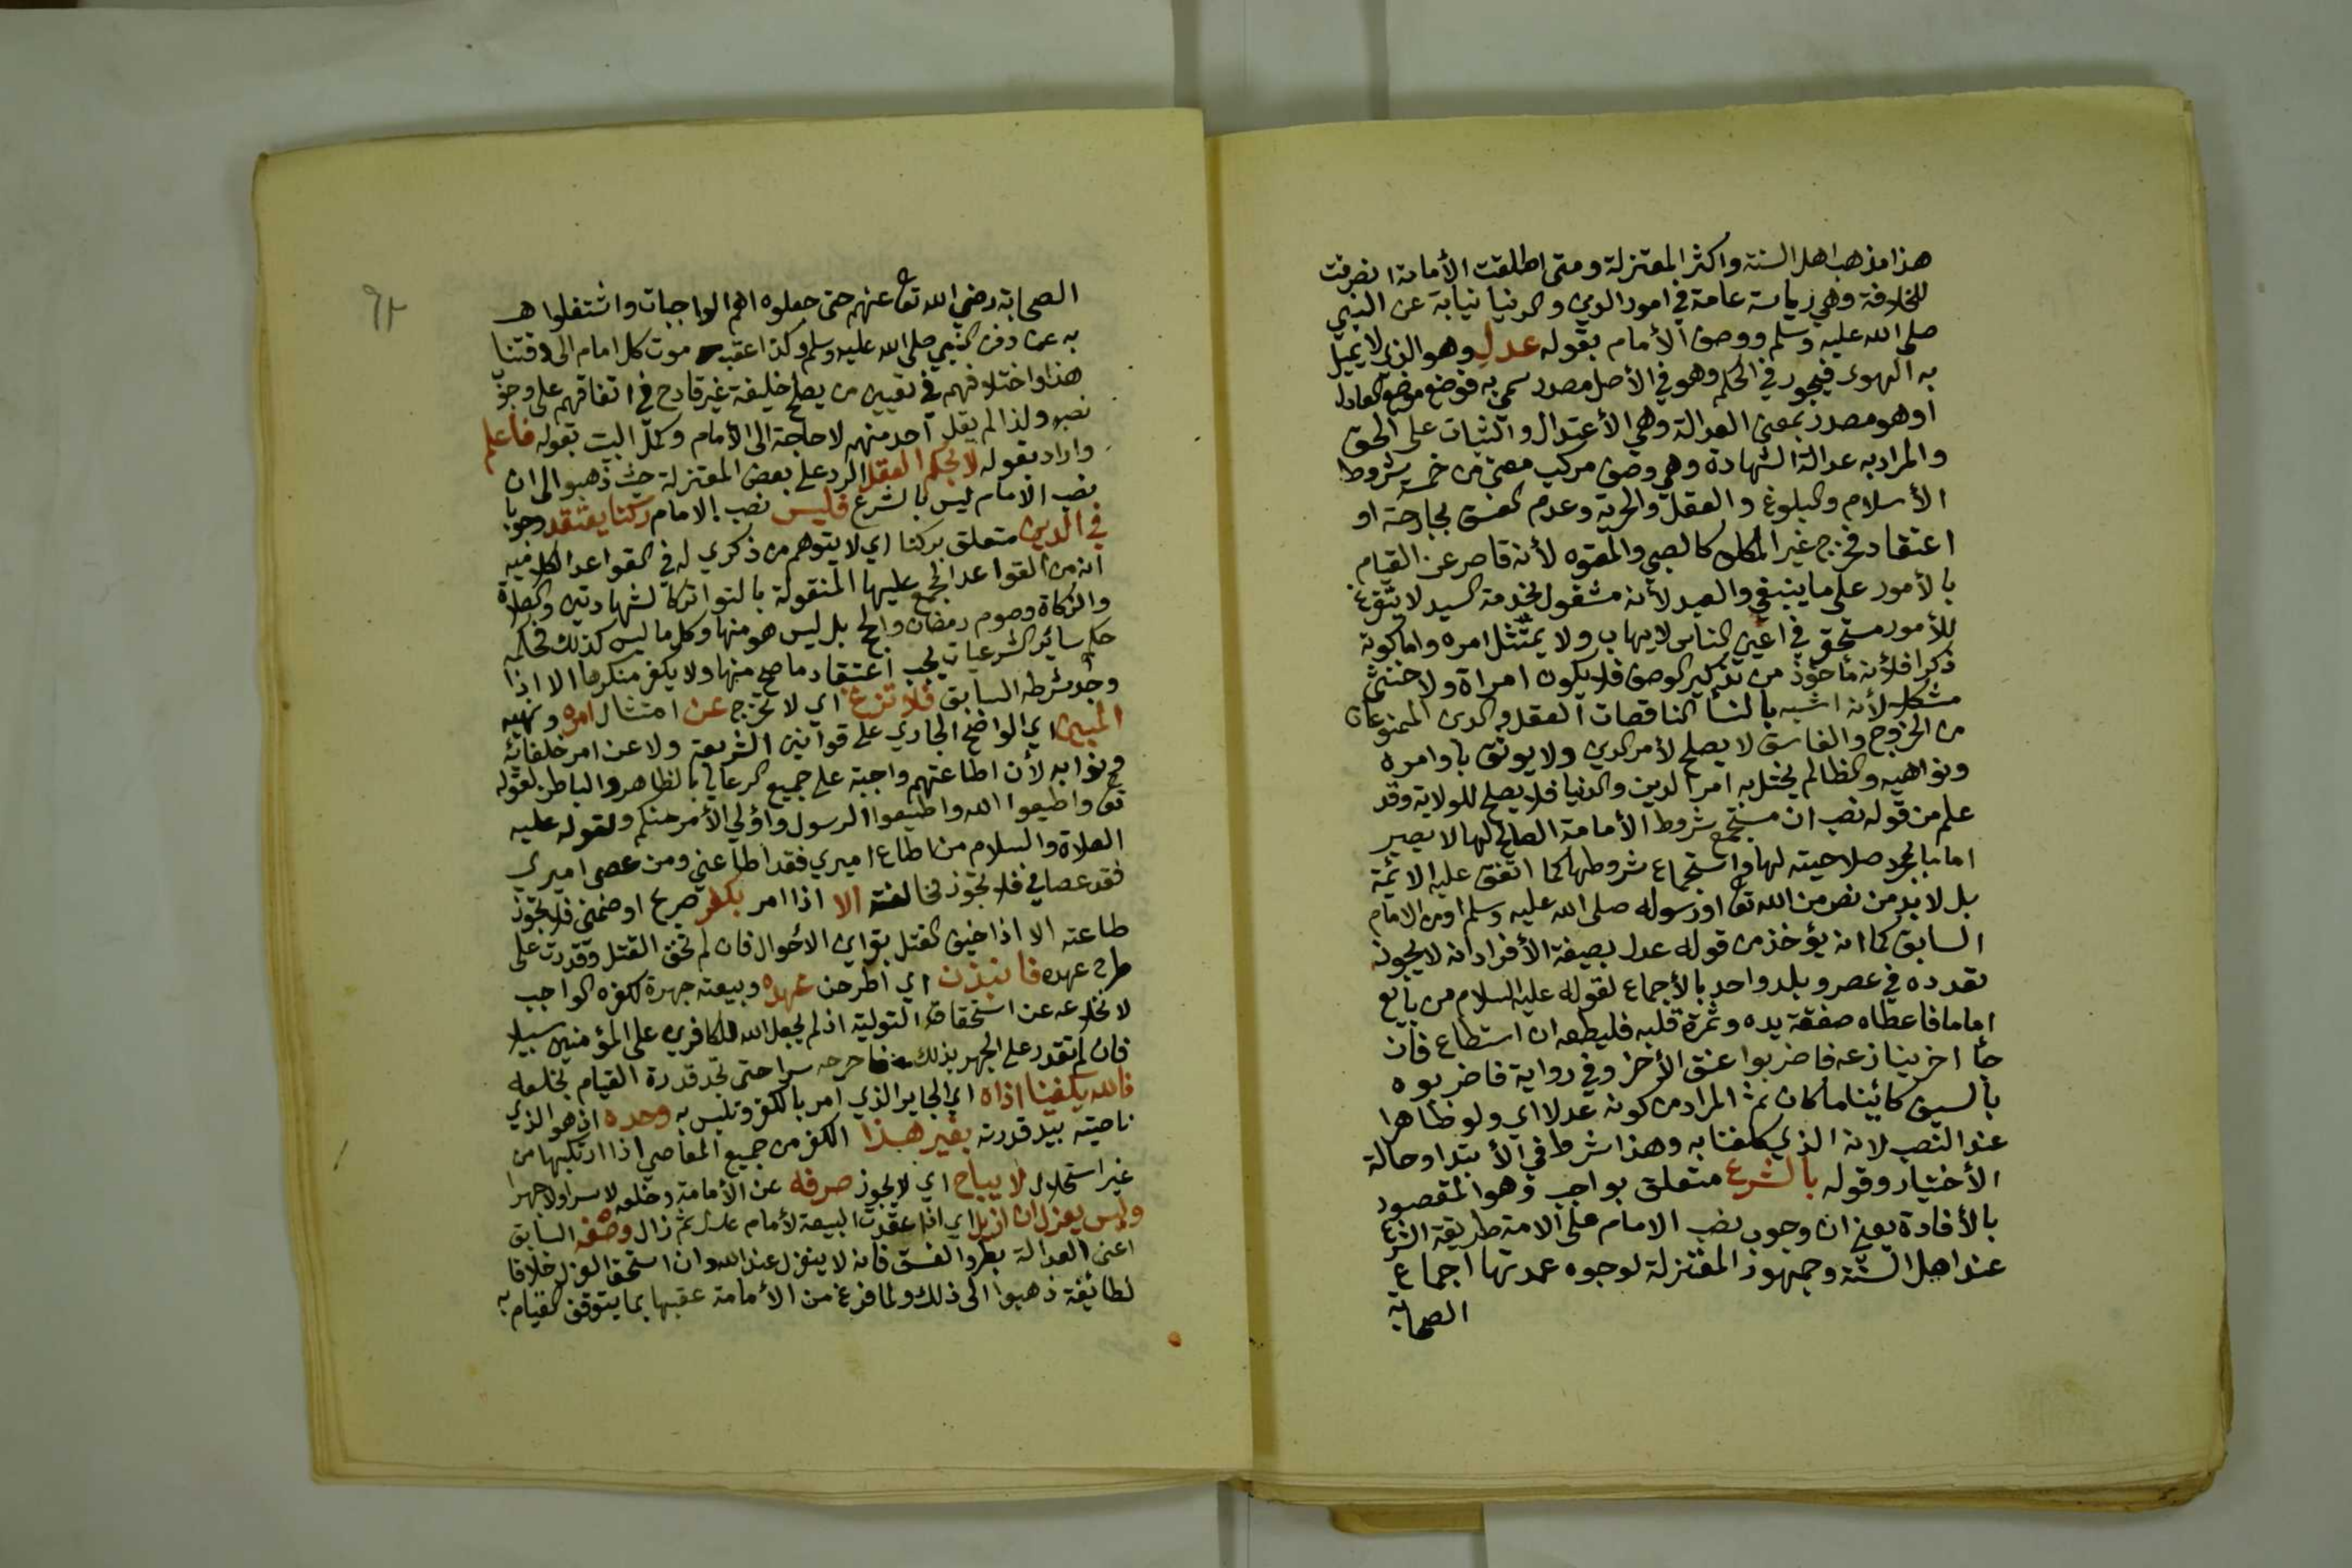 هذا مذهب اهل السنة واكثر المعتزلة ومتى اطلقت الأمامة انصرفت
للخلافة وهي رياسة عامة في امور الدين والدنيا نيابة عن النبي
صلى الله عليه وسلم ووصف الأمام بقوله عدل وهو الذي لا يميل
به الهوى فيجور في الحكم وهو في الأصل مصدر سمي به فوضع موضع العادل
او هو مصدر بمعنى العدالة وهي الأعتدال والثبات على الحق
والمراد به عدالة الشهادة وهي وصف مركب معنى من خمسة شروط
الأسلام والبلوغ والعقل والحرية وعدم الفسق بجارحة او
اعتقاد فخرج غير المكلف كالصبي والمعتوه لأنه قاصر عن القيام
بالأمور على ما ينبغي والعبد لأنه مشغول بخدمة السيد لا يتفرغ
للأمور مستحقر في اعين الناس لا يهاب ولا يمتثل امره واما كونه
ذكرا فلأنه مأخوذ من تذكير الوصف فلا يكون امراة ولا خنثى
مشكل لأنه اشبه بالنسأ الناقصات العقل والدين الممنوعات
من الخروج والفاسق لا يصلح لأمر الدين ولا يوثق باوامره
ونواهيه والظالم يختل به امر الدين والدنيا فلا يصلح للولاية وقد
علم من قوله نصب ان مستجمع شروط الأمامة الصالح لها لا يصير
اماما بمجرد صلاحيته لها واستجماع شروطها كما اتفق عليه الائمة
بل لابد من نص من الله تعا او رسوله صلى الله عليه وسلم او من الامام
السابق كما انه يؤخذ من قوله عدل بصيغة الأفراد انه لا يجوز
تعدده في عصر وبلد واحد بالأجماع لقوله عليه السلام من بايع
اماما فاعطاه صفقة يده وثمرة قلبه فليطعه ان استطاع فان
جأ اخر ينازعه فاضربوا عنق الأخر وفي رواية فاضربوه
بالسيف كائنا ما كان ثم المراد من كونه عدلا اي ولو ظاهرا
عند النصب لانه الذي كلفنا به وهذا شرط في الأبتدا وحالة
الأختيار وقوله بالشرع متعلق بواجب وهو المقصود
بالأفادة يعني ان وجوب نصب الامام على الامة طريقة الشرع
عند اهل السنة وجمهور المعتزلة لوجوه عمدتها اجماع
الصحابة
٩٢
الصحابة رضي الله تعا عنهم حتى جعلوه اهم الواجبات واشتغلوا
به عن دفن النبي صلى الله عليه وسلم وكذا عقب موت كل امام الى وقتنا
هذا واختلافهم في تعيين من يصلح خليفة غير قادح في اتفاقهم على وجو
نصبه ولذا لم يقل احد منهم لا حاجة الى الأمام وكمل البيت بقوله فاعلم
واراد بقوله لا بحكم العقل الرد على بعض المعتزلة حيث ذهبوا الى ان
نصب الامام ليس بالشرع فليس نصب الامام ركنا يعتقد وجوبا
في الدين متعلق بركنا اي لا يتوهم من ذكري له في القواعد الكلامية
انه من القواعد المجمع عليها المنقولة بالتواتر كالشهادتين والصلاة
والزكاة وصوم رمضان والحج بل ليس هو منها وكل ما ليس كذلك فحكمه
حكم سائر الشرعيات يجب اعتقاد ما صح منها ولا يكفر منكرها الا اذا
وجد شرطه السابق فلا تزغ اي لا تخرج عن امتثال امره ونهيه
المبين اي الواضح الجاري على قوانين الشريعة ولا عن امر خلفائه
ونوابه لأن اطاعتهم واجبة على جميع الرعايا بالظاهر والباطن لقوله
تعا واطيعوا الله واطيعوا الرسول واولي الأمر منكم ولقوله عليه
الصلاة والسلام من اطاع اميري فقد اطاعني ومن عصى اميري
فقد عصاني فلا تجوز مخالفته الا اذا امر بكفر صريح او ضمني فلا تجوز
طاعته الا اذا خيف القتل بقراين الأحوال فان لم تخف القتل وقدرت على
طرح عهده فانبذن اي اطرحن عهده وبيعته جهرة لكفره الواجب
لانخلاعه عن استحقاق التولية اذ لم يجعل الله للكافرين على المؤمنين سبيلا
فان لم تقدر على الجهر بذلك فاطرحه سرا حتى تجد قدرة القيام بخلعه
فالله يكفينا اذاه اي الجاير الذي امر بالكفر وتلبس به وحده اذ هو الذي
ناصيته بيد قدرته بغير هذا الكفر من جميع المعاصي اذا ارتكبها من
غير استحلال لا يباح اي لا يجوز صرفه عن الأمامة وخلعه لا سرا ولا جهرا
وليس يعزل ان ازيل اي اذا عقدت البيعة لأمام عدل ثم زال وصفه السابق
اعني العدالة بطرو الفسق فانه لا ينعزل عند الله وان استحق العزل خلافا
لطائفة ذهبوا الى ذلك ولما فرغ من الأمامة عقبها بما يتوقف القيام به